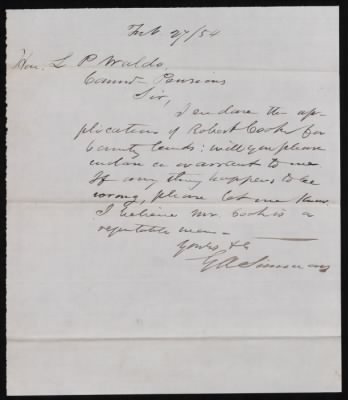 Feb 27/54
Hon. L P. Waldo,
Comr Pensions
Sir,
I enclose the ap-
plocation of Robert Cook for
bounty lands: will you please
enclose a warrant to me
If any thing happens to be
wrong, please let me know.
I believe Mr. Cook is a
reputable man.
Yours &c
G A Simmons